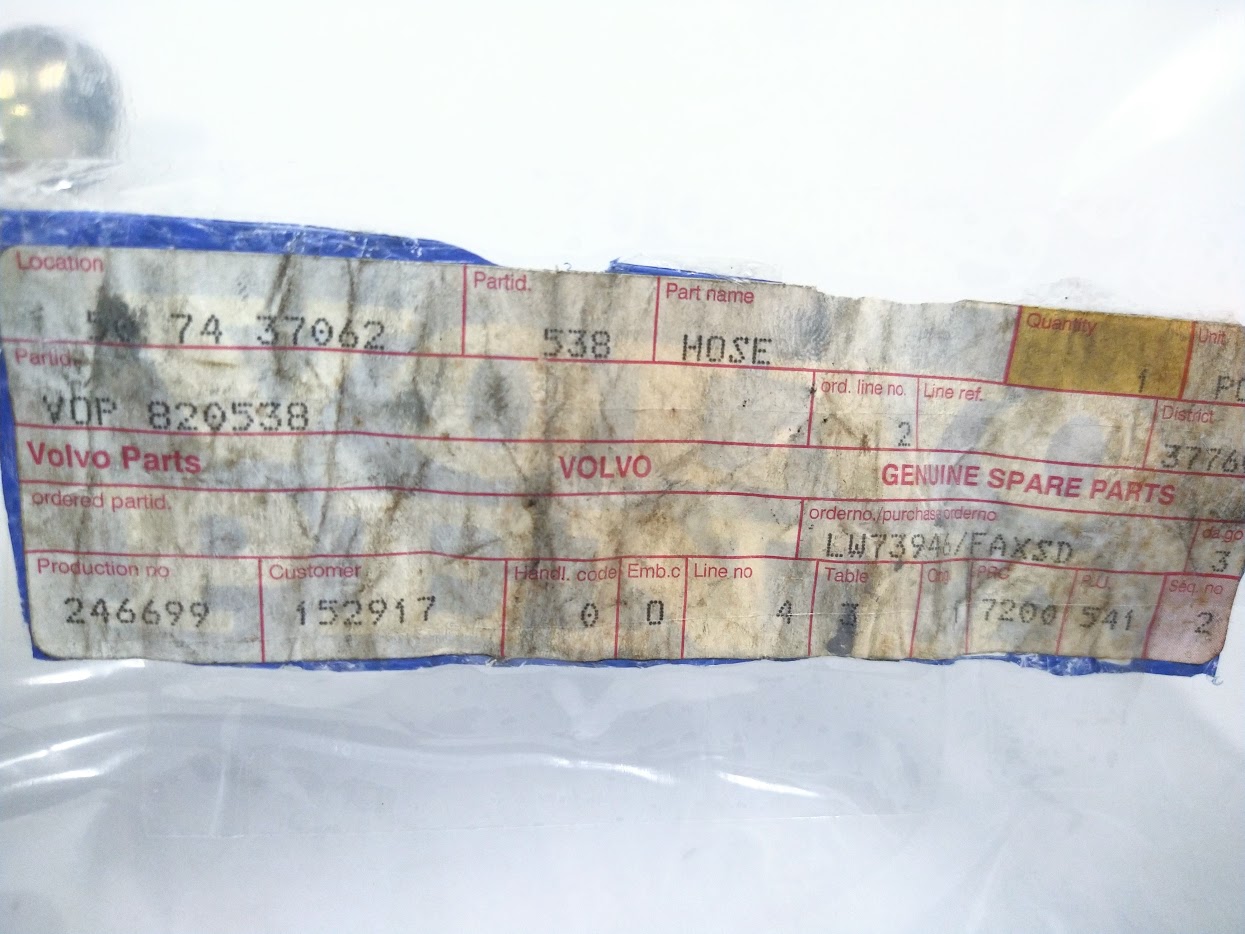 Location Partid. Part name Quantity Unit
1 50 74 37062 538 HOSE 1
Partid. ord. line no. Line ref. District
VOP 820538 2
Volvo Parts VOLVO GENUINE SPARE PARTS
ordered partid. orderno./purchase orderno
LW73946/FAXSD 3
Production no Customer Handl. code Emb.c Line no Table PRC Seq. no
246699 152917 0 0 4 3 1 7200 541 2